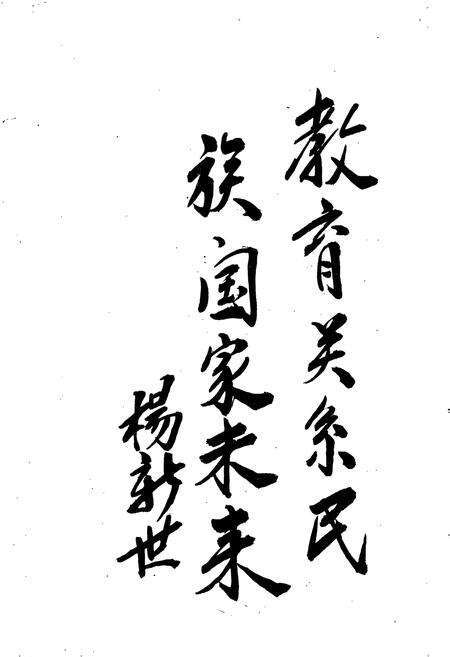 教育关系民
族国家未来
楊新世